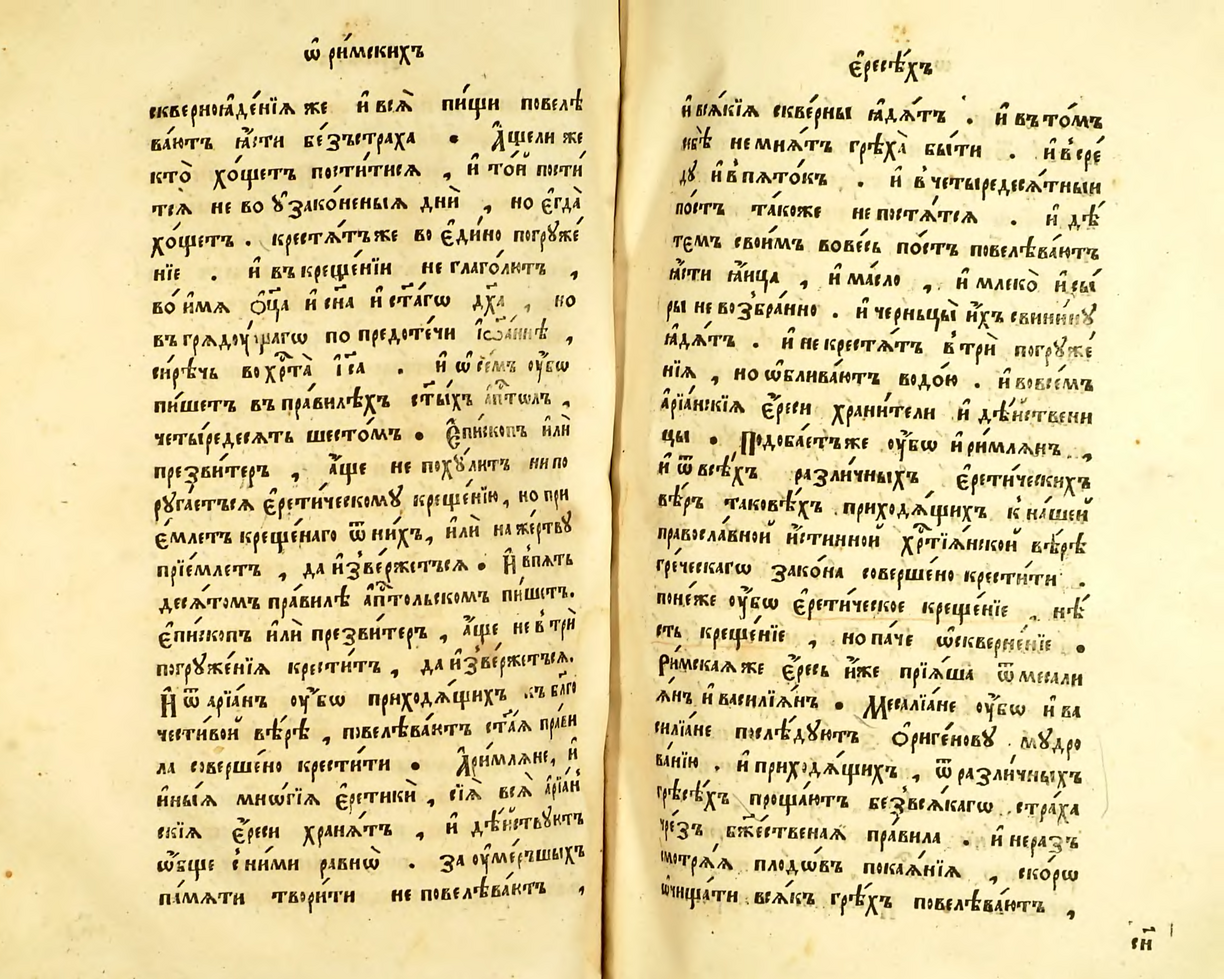 ѿ ри́мскихъ
скверноꙗде́нїѧ же и҆ всѧ̀ пи́щи повелѣ
ва́ютъ ꙗ҆́сти бе́зъстраха . А҆́щели же
кто̀ хо́щетъ пости́тисѧ , и҆ то́й пости́
тсѧ не во ᲂу҆зако́неныѧ днѝ , но є҆гда̀
хо́щетъ . крестѧ́тъже во є҆ди́но погруже́
нїе . и҆ въкреще́нїи не глаго́лютъ ,
во́ имѧ ѻ҆ц҃а и҆ сн҃а и҆ ст҃а́гѡ дх҃а , но
въгрѧдꙋ́щагѡ по предоте́чи і҆ѡа́ннѣ ,
си́рѣчь во хрⷭ҇та̀ і҆са . и҆ ѡ҆ се́мъ ᲂу҆́бѡ
пи́шетъ въ пра́вилѣхъ ст҃ы́хъ а҆пⷭ҇толъ ,
четы́редесѧть шесто́мъ . Є҆пи́скопъ и҆лѝ
презви́теръ , а҆́ще не похꙋ́литъ нипо
рꙋга́етъсѧ є҆рети́ческомꙋ креще́нїю , но при
є́млетъ креще́наго ѿ ни́хъ , и҆лѝ на же́ртвꙋ
прїе́млетъ , да и҆зве́ржетъсѧ . И҆ впѧть
десѧ́томъ пра́вилѣ а҆пⷭ҇тольскомъ пи́шетъ .
є҆пи́скопъ и҆лѝ презви́теръ , а҆́ще не в трѝ
погрꙋже́нїѧ крести́тъ , да и҆зве́ржетъсѧ .
И҆ ѿ а҆рїа́нъ ᲂу҆́бѡ приходѧ́щихъ къ бл҃го
чести́вой вѣ́рѣ , повелѣва́ютъ ст҃а́ѧ пра́ви
ла соверше́но крести́ти . А҆ри́млѧне , и҆
и҆ны́ѧ мнѡ́гїѧ є҆ретикѝ , сїѧ̀ всѧ̀ а҆рїа́н
скїѧ є҆́реси хранѧ́тъ , и҆ дѣ́йствꙋютъ
ѡ҆́бще с ни́ми равнѡ̀ . за ᲂу҆ме́ръшыхъ
па́мѧти твори́ти не повелѣва́ютъ ,
є҆́ресѣхъ
и҆ всѧ́кїѧ скве́рны ꙗ҆дѧ́тъ . и҆ въто́мъ
себѣ̀ не мнѧ́тъ грѣха̀ бы́ти . и҆ в сре́
дꙋ и҆ в пѧто́къ . и҆ в четыредесѧ́тный
по́стъ та́коже не постѧ́тсѧ . и҆ дѣ́
темъ свои́мъ во ве́сь по́стъ повелѣва́ютъ
ꙗ҆́сти ꙗ҆́ица , и҆ ма́сло , и҆ млеко̀ и҆ сы́
ры не возбра́нно . и҆ черньцы̀ и҆́хъ свини́нꙋ
ꙗ҆дѧ́тъ . и҆ не крестѧ́тъ в трѝ погрꙋже́
нїѧ , но ѡ҆блива́ютъ водо́ю . и҆ вовсе́мъ
а҆рїа́нскїѧ є҆́реси храни́тели и҆ дѣ́йствени
цы . Подоба́етъже ᲂу҆́бѡ и҆ ри́млѧнъ ,
и҆ ѿ всѣ́хъ разли́чныхъ є҆рети́ческихъ
вѣ́ръ таковѣ́хъ приходѧ́щихъ к на́шей
правосла́вной и҆́стинной хрⷭ҇тїѧ́нской вѣ́рѣ
гре́ческагѡ зако́на соверше́но крести́ти .
поне́же ᲂу҆́бѡ є҆рети́ческое креще́нїе , нѣ́
сть креще́нїе , но па́че ѡ҆скверне́нїе .
Ри́мскаѧже є҆́ресь и҆́же прїѧ́ша ѿ месали
ѧ́нъ и҆ василїѧ́нъ . Месалїа́не ᲂу҆́бѡ и҆ ва
силїа́не послѣ́дꙋютъ ѻ҆риге́новꙋ мꙋдро
ва́нїю . и҆ приходѧ́щихъ , ѿ разли́чныхъ
грѣсѣ́хъ проща́ютъ без̾всѧ́кагѡ стра́ха
чре́зъ бж҃е́ственаѧ пра́вила . и҆ нераз̾
смотрѧ́ѧ плодо́въ покаѧ́нїѧ , ско́рѡ
ѡ҆чища́ти всѧ́къ грѣ́хъ повелѣва́ютъ ,
сн҃